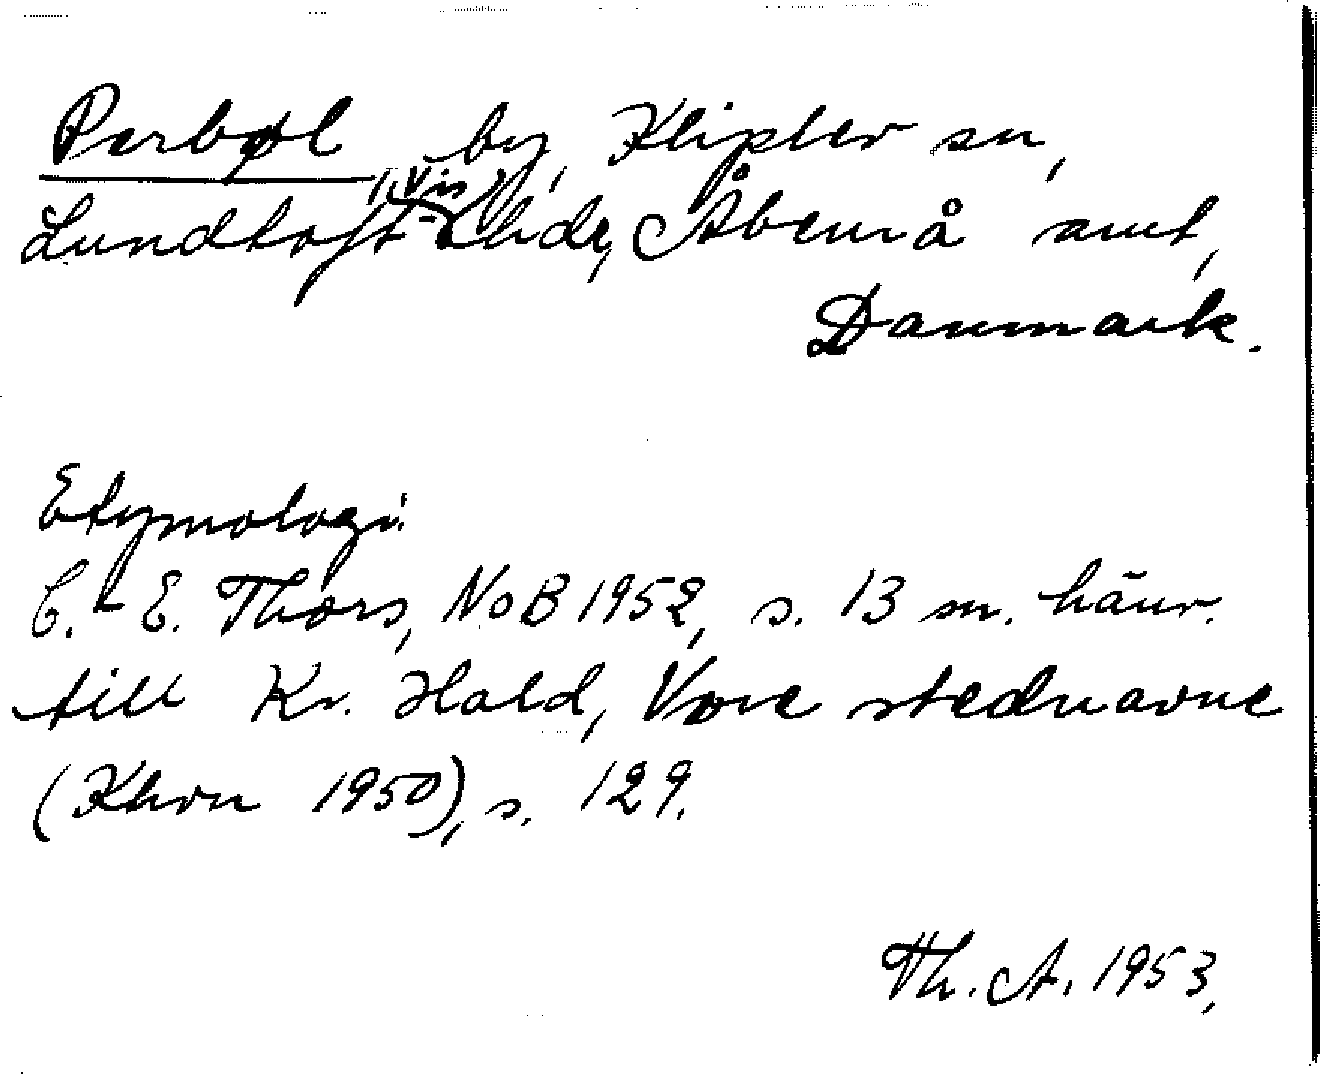 Perbøl by, Kliplev sn,
(Vis)
Lundtoft hde, Åbenrå amt,
Danmark.
Etymologi:
C.-E. Thors, NoB 1952, s. 13 m. hänv.
till Kr. Hald, Vore stednavne
(Khvn 1950), s. 129.
Th. A. 1953,